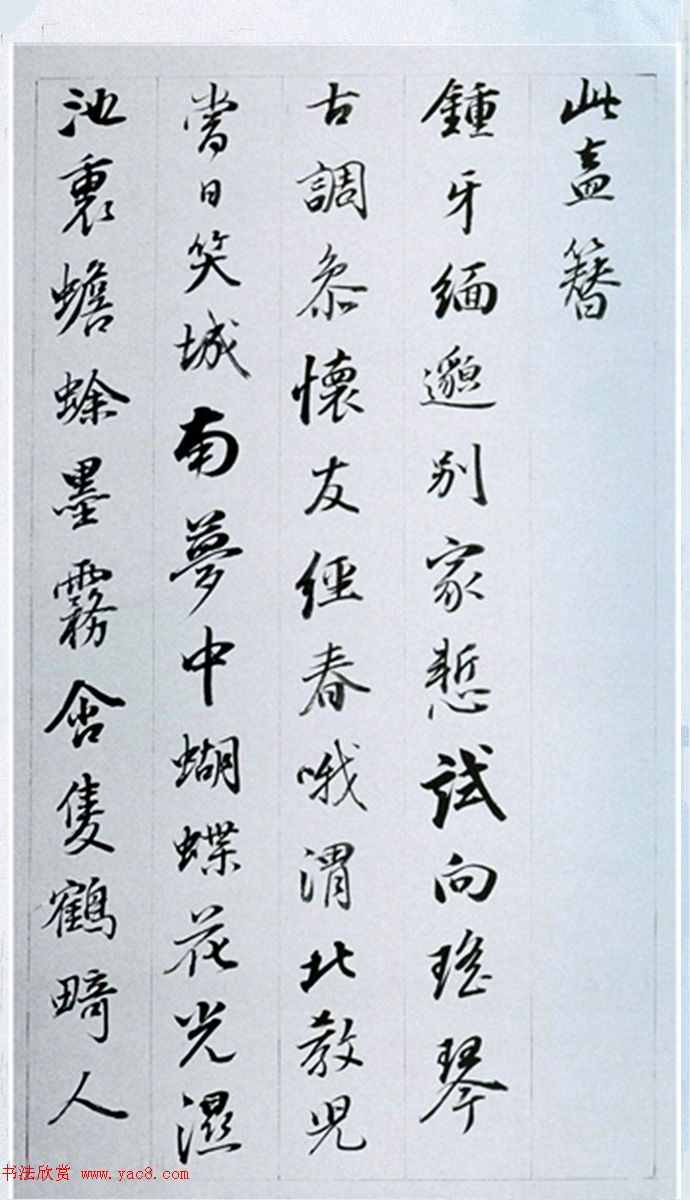 此盍簪
鍾牙緬邈別家慙試向瑤琴
古調叅懷友經春哦渭北教兒
當日笑城南夢中蝴蝶花光濕
池裏蟾蜍墨霧含隻鶴畸人
书法欣赏 www.yac8.com